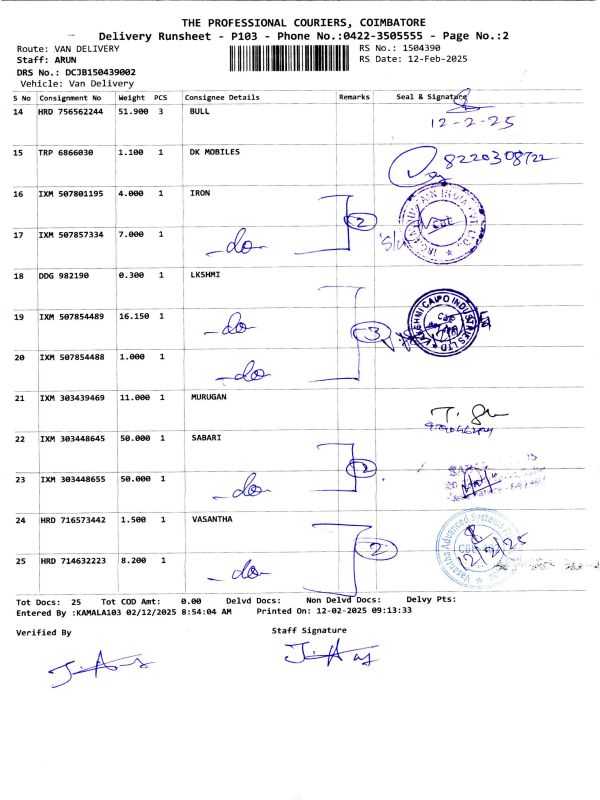 THE PROFESSIONAL COURIERS, COIMBATORE
Delivery Runsheet - P103 - Phone No.:0422-3505555 - Page No.:2
Route: VAN DELIVERY
RS No.: 1504390
Staff: ARUN
RS Date: 12-Feb-2025
DRS No.: DCJB150439002
Vehicle: Van Delivery
S No Consignment No Weight PCS Consignee Details Remarks Seal & Signature
14 HRD 756562244 51.900 3 BULL
12-2-25
15 TRP 6866030 1.100 1 DK MOBILES
16 IXM 507801195 4.000 1 IRON 2
17 IXM 507857334 7.000 1 -do-
18 DDG 982190 0.300 1 LKSHMI
19 IXM 507854489 16.150 1 -do- 3
20 IXM 507854488 1.000 1 -do-
21 IXM 303439469 11.000 1 MURUGAN
22 IXM 303448645 50.000 1 SABARI 2
23 IXM 303448655 50.000 1 -do-
24 HRD 716573442 1.500 1 VASANTHA 2
Vasantha Advanced Systems
12/2/25
25 HRD 714632223 8.200 1 -do-
Tot Docs: 25 Tot COD Amt: 0.00 Delvd Docs: Non Delvd Docs: Delvy Pts:
Entered By :KAMALA103 02/12/2025 8:54:04 AM Printed On: 12-02-2025 09:13:33
Verified By
Staff Signature